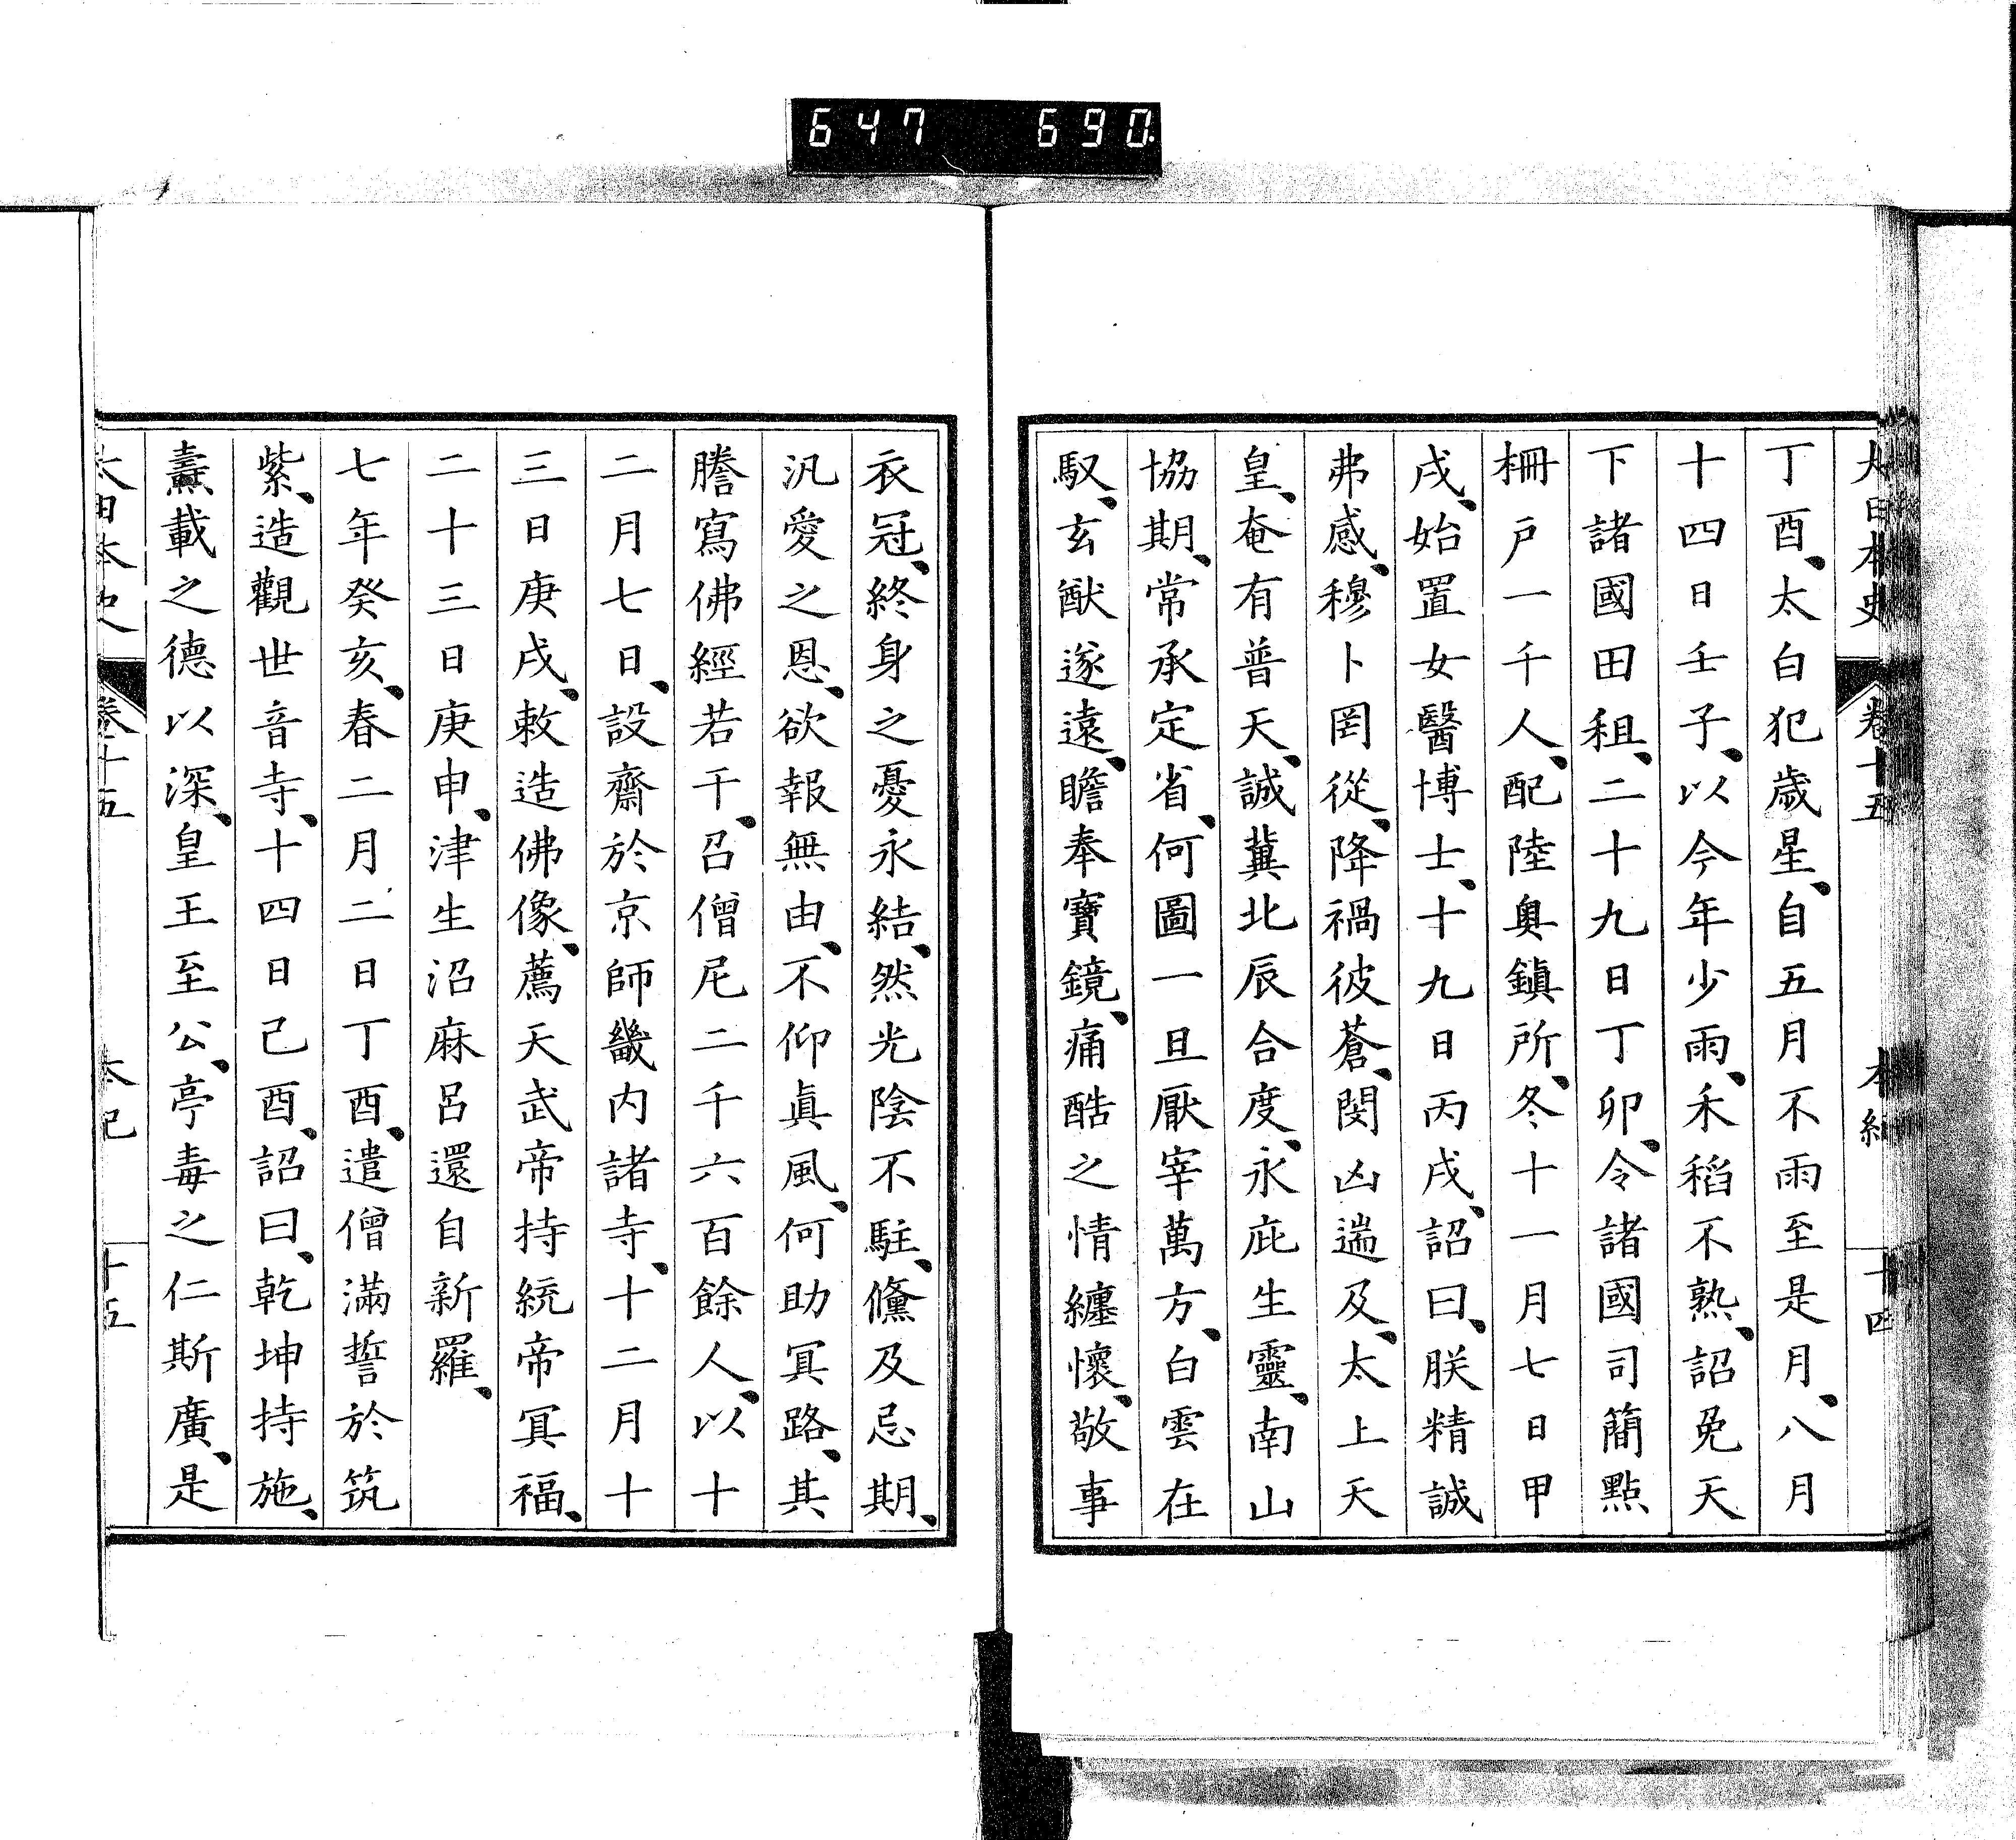 647 690
大日本史 卷十五 本紀 十四
丁酉、太白犯歲星、自五月不雨至是月、八月
十四日壬子、以今年少雨、禾稻不熟、詔免天
下諸國田租、二十九日丁卯、令諸國司簡點
柵戶一千人、配陸奧鎭所、冬十一月七日甲
戌、始置女醫博士、十九日丙戌、詔曰、朕精誠
弗感、穆卜罔從、降禍彼蒼、閔凶遄及、太上天
皇、奄有普天、誠冀北辰合度、永庇生靈、南山
協期、常承定省、何圖一旦厭宰萬方、白雲在
馭、玄猷遂遠、瞻奉寶鏡、痛酷之情纏懷、敬事
衣冠、終身之憂永結、然光陰不駐、儵及忌期、
汎愛之恩、欲報無由、不仰眞風、何助冥路、其
謄寫佛經若干、召僧尼二千六百餘人、以十
二月七日、設齋於京師畿內諸寺、十二月十
三日庚戌、敕造佛像、薦天武帝持統帝冥福、
二十三日庚申、津生沼麻呂還自新羅、
七年癸亥、春二月二日丁酉、遣僧滿誓於筑
紫、造觀世音寺、十四日己酉、詔曰、乾坤持施、
燾載之德以深、皇王至公、亭毒之仁斯廣、是
大日本史 卷十五 本紀 十五